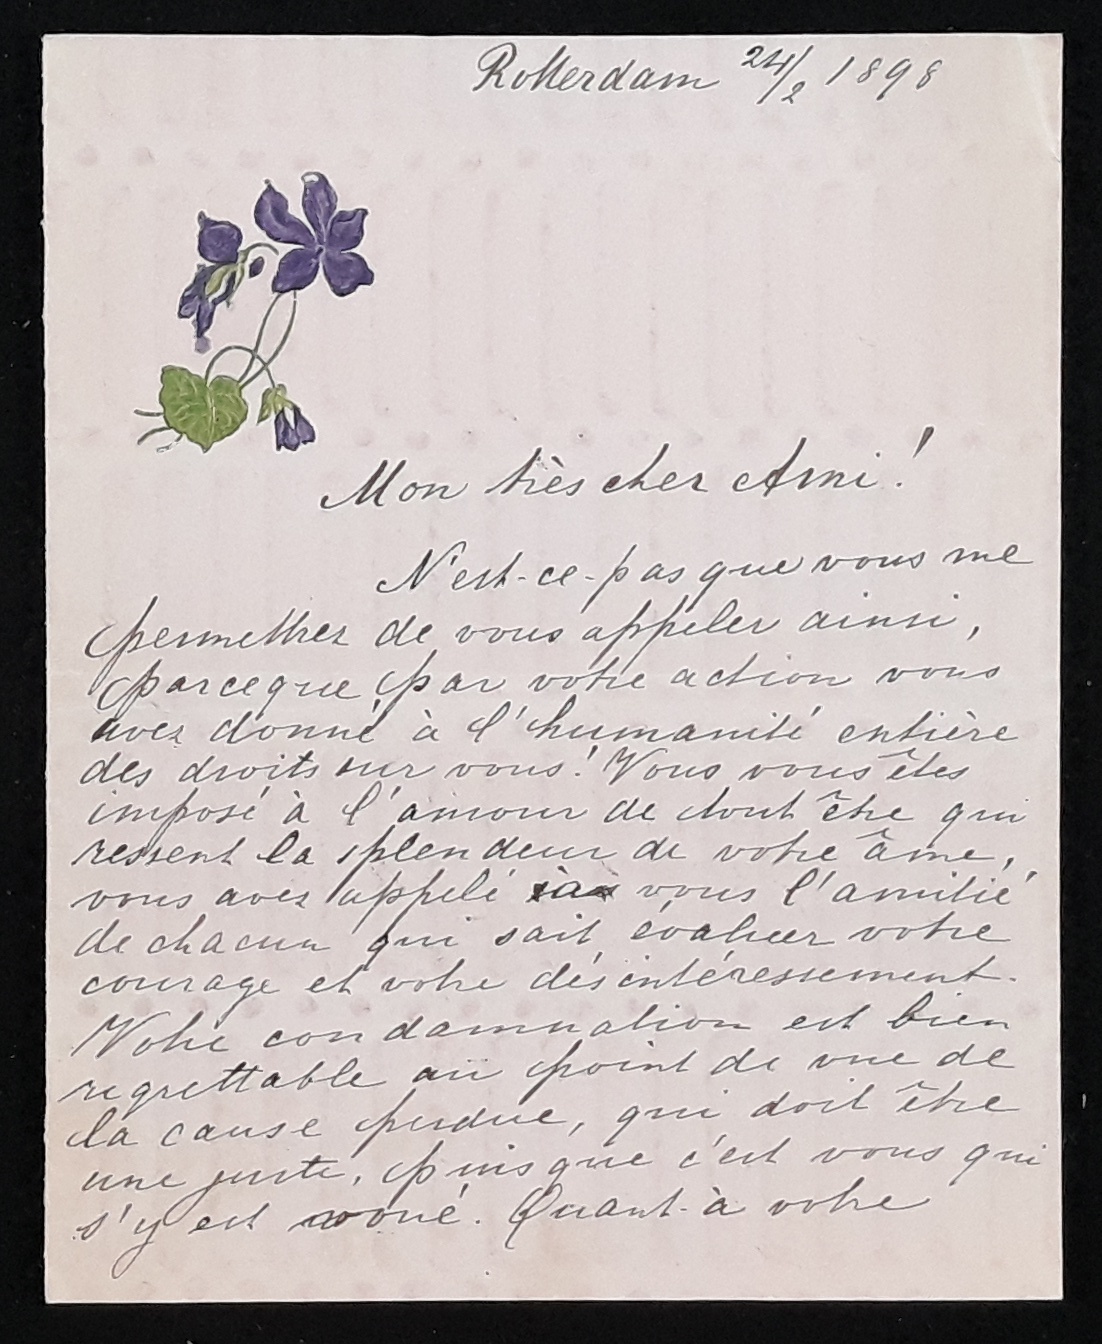 Rotterdam 24/2 1898
Mon très cher Ami!
N'est-ce-pas que vous me
permettrez de vous appeler ainsi,
parceque par votre action vous
avez donné à l'humanité entière
des droits sur vous! Vous vous êtes
imposé à l'amour de tout être qui
ressent la splendeur de votre âme,
vous avez appelé à vous l'amitié
de chacun qui sait évaluer votre
courage et votre désintéressement.
Votre condamnation est bien
regrettable au point de vue de
la cause perdue, qui doit être
une juste, puisque c'est vous qui
s'y est voué. Quant-à votre